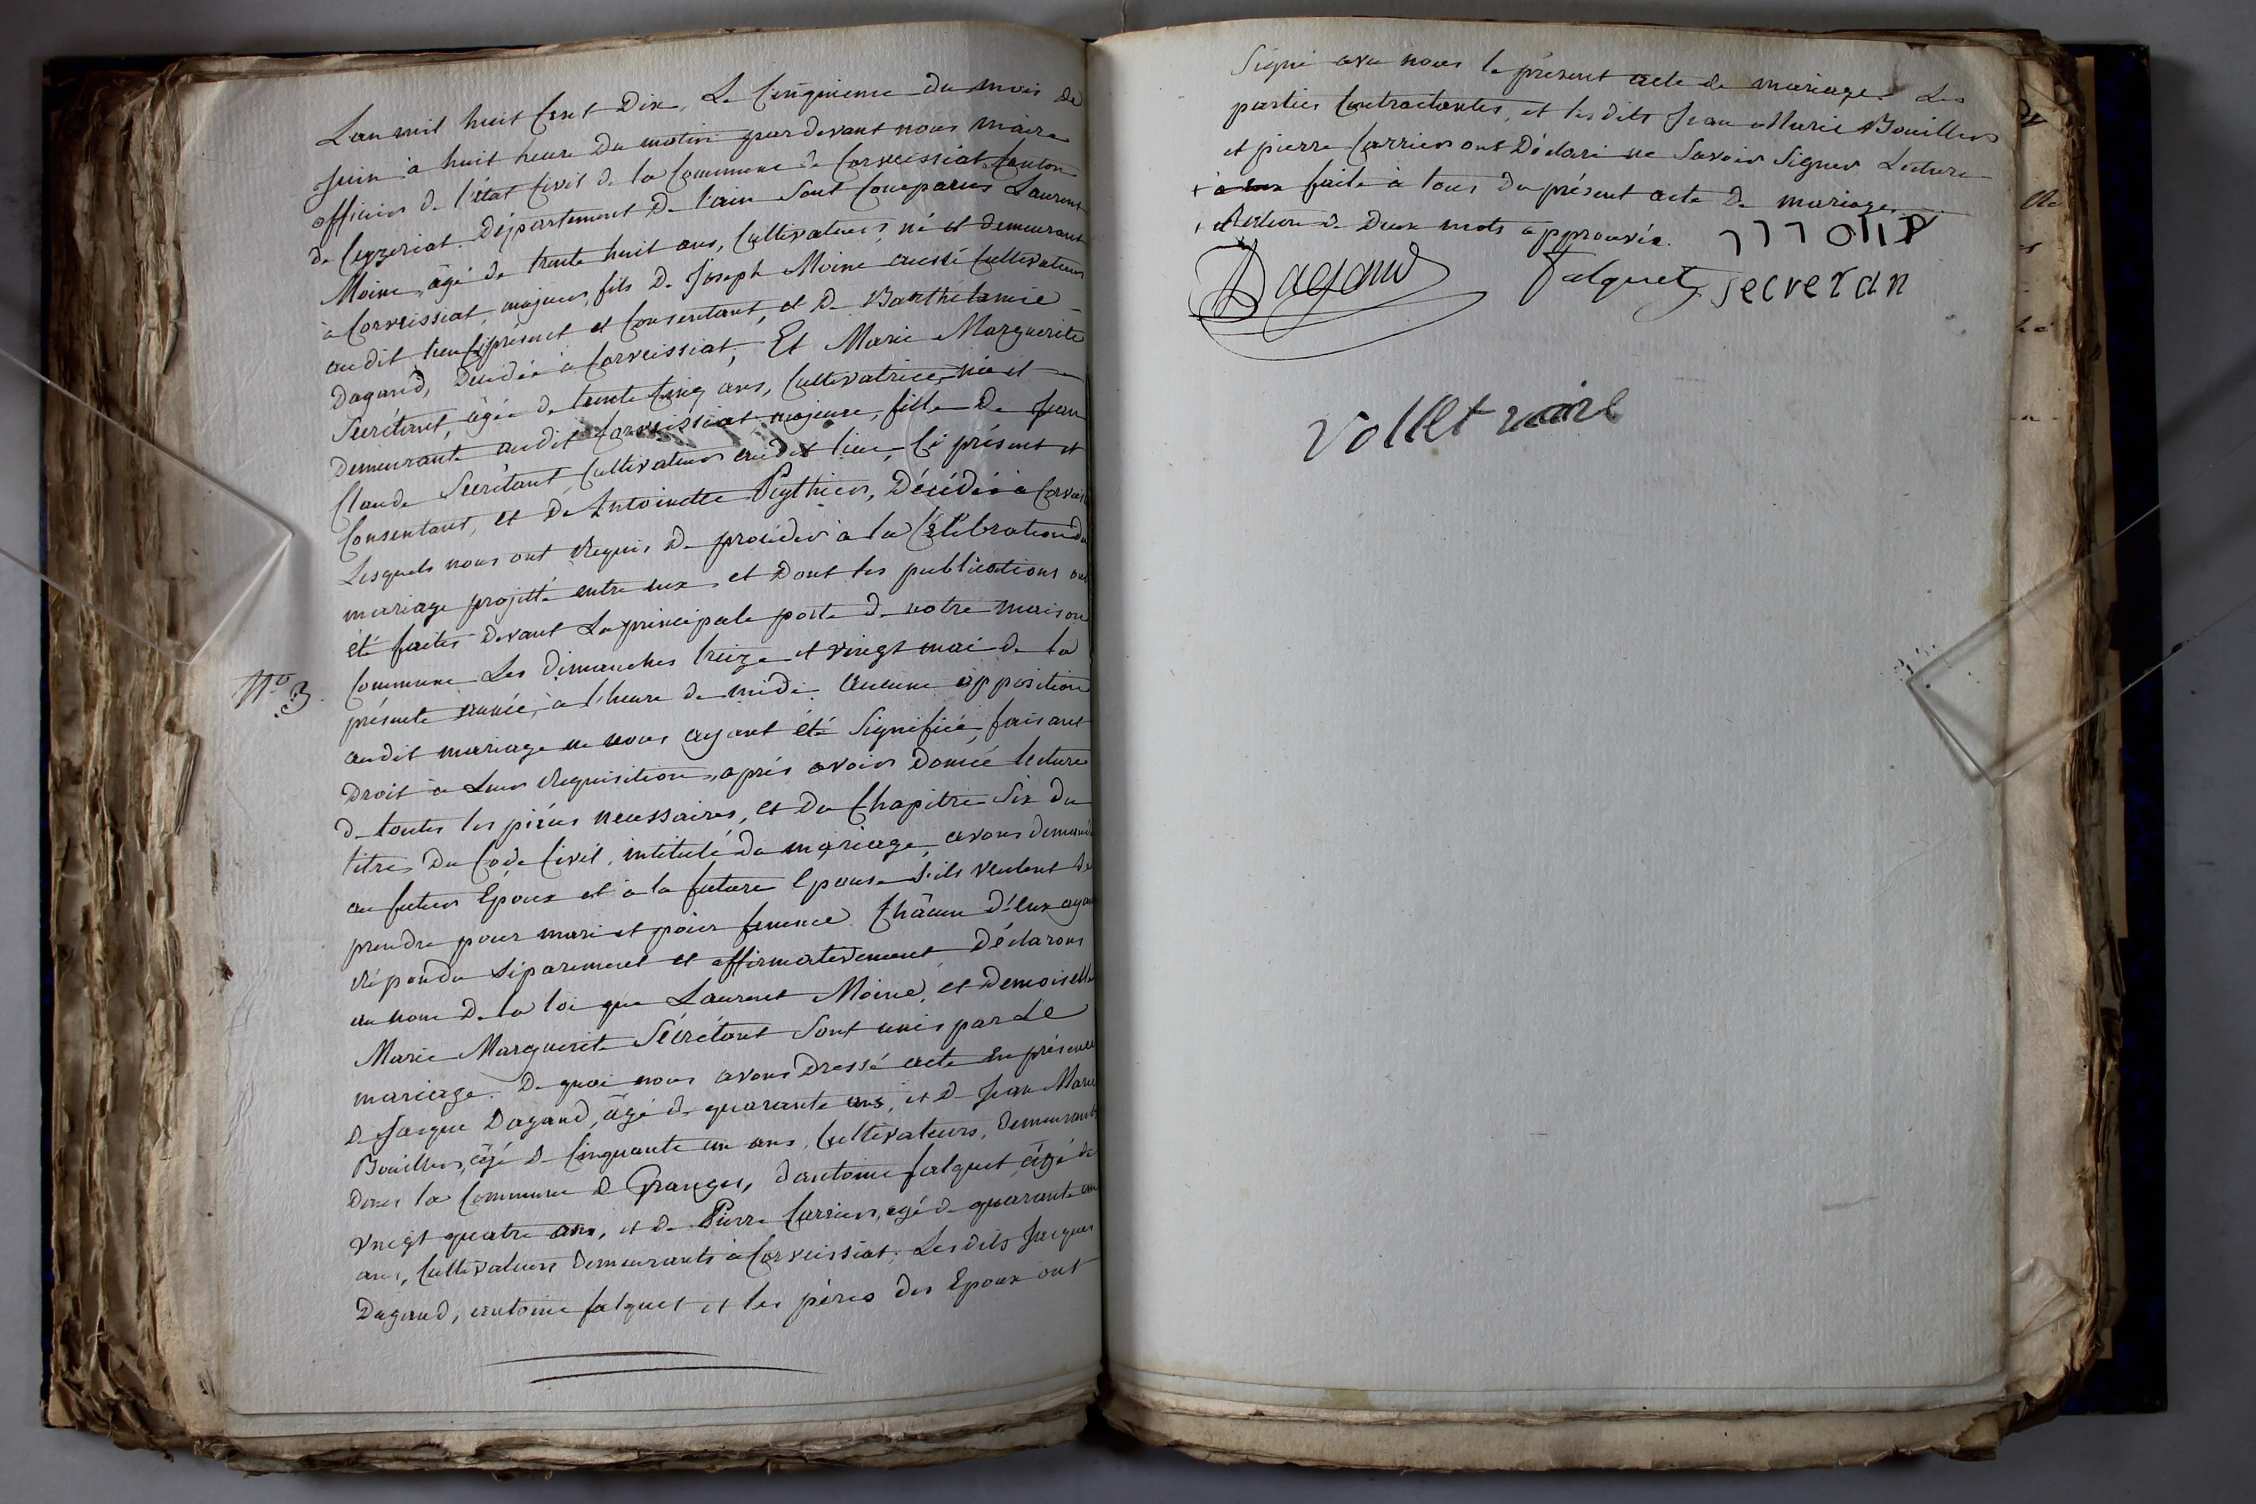 L'an mil huit Cent Dix, Le Cinquieme du mois de
Juin à huit heure du matin pardevant nous maire
officier de l'état Civil de la Commune de Corveissiat Canton
de Ceyzeriat Département De l'ain Sont Comparus Laurent
Moine, âgé de trente huit ans, Cultivateur, né et demeurant
à Corveissiat, majeur, fils De Joseph Moine aussi Cultivateur
au dit lieu Ci présent et Consentant, et De Barthelamie
Dagand, Décédée à Corveissiat, Et Marie Marguerite
Secrétant, âgée de trente Cinq ans, Cultivatrice, née et
Demeurante audit Corveissiat majeure, fille De Jean
Claude Secrétant Cultivateur audit lieu, Ci présent et
Consentant, et De Antoinette Peythieu, Décédée à Corveis
Lesquels nous ont requis De procéder à la Célébration du
mariage projetté entre eux et Dont les publications ont
été faites Devant La principale porte De notre maison
Nº 3.
Commune Les Dimanches treize et vingt mai de la
présente année, à l'heure de midi Aucune opposition
audit mariage ne nous ayant été Signifiée, faisant
Droit à Leur requisition, après avoir Donnée lecture
De toutes les pièces necessaires, et Du Chapitre Six du
titre Du Code Civil, intitulé du mariage, avons demandé
au futur Epoux et à la future Epouse S'ils veulent se
prendre pour mari et pour femme Châcun D'eux ayant
répondu Séparement et affirmativement, Déclarons
au nom De la loi que Laurent Moine, et Demoiselle
Marie Marguerite Sécrétant Sont unis par Le
mariage. De quoi nous avons Dressé acte En présence
De Jacque Dagand, âgé de quarante ans, et De Jean Marie
Bouiller, âgé De Cinquante un ans, Cultivateurs, Demeurants
Dans la Commune De Granges, D'antoine falquet, âgé de
vingt quatre ans, et De Pierre Carrier, agé de quarante un
ans, Cultivateurs Demeurants à Corveissiat. Les dits Jacques
Dagand, antoine falquet et les pères des Epoux ont
Signé avec nous le présent acte de mariage. Les
parties Contractantes, et les dits Jean Marie Bouiller
et pierre Carrier ont Déclaré ne Savoir Signer Lecture
+ à eux faite à tous du présent acte De mariage
+ Rature de Deux mots approuvée.
Dagand Falquet Secretan
Vollet maire